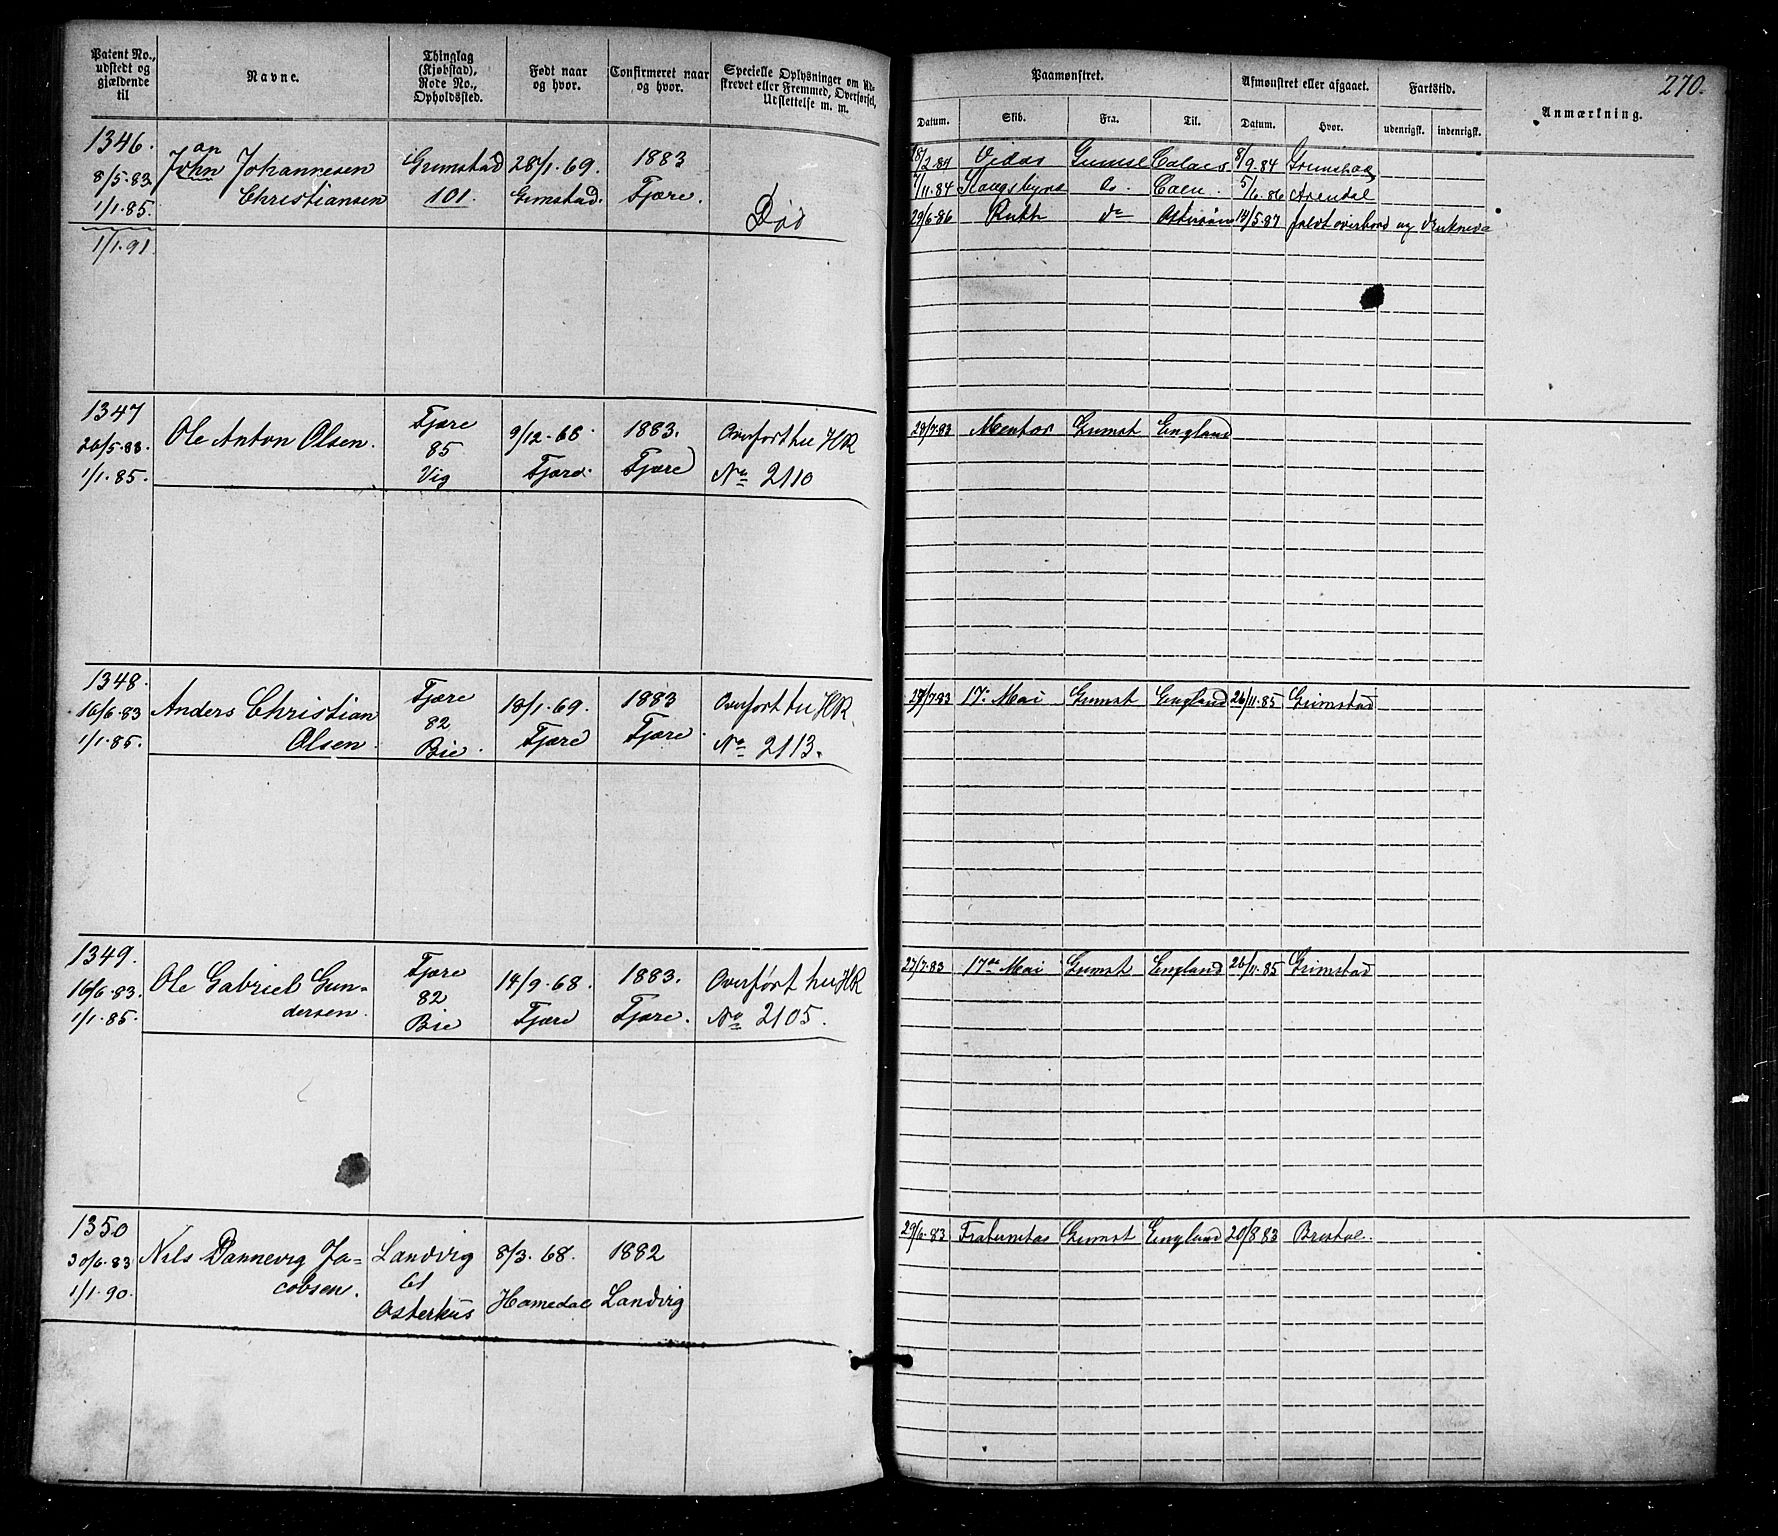 Patent No., udstedt og gjældende til
Navne.
Thinglag (Kjøbstad), Rode No., Opholdsted.
Født naar og hvor.
Confirmeret naar og hvor.
Specielle Oplysninger om
strevet eller Fremmed, Overførsel,
Udslettelse m. m.
Paamønstret.
Afmønstret eller afgaaet.
Fartstid.
Anmærkning.
270.
Datum.
Skib.
Fra.
Til.
Datum.
Hvor.
udenrigsk.
indenrigsk.
1346.
8/5.83
1/1.85.
1/1.91
an
John Johannesen
Christiansen
Grimstad
101.
28/1.69.
Grimstad.
1883
Fjære.
Død
18/2.84 Vidar Grimst Calais 8/9.84 Grimstad
7/11.84 do. Caen. 5/6.86 Arendal
29/6.86 Ruth do 14/5.87 faldt overbord og druknede
1347
26/5.83
1/1.85.
Ole Anton Olsen.
Fjære
85
Vig
9/12.68.
Fjære.
1883.
Fjære
Overført til HR
No 2110
28/7.83 Mentor Grimst England
1348.
16/6.83
1/1.85.
Anders Christian
Olsen.
Fjære
82
Bie.
18/1.69.
Fjære
1883
Fjære.
Overført til HR.
No 2113.
27/7.83 17de Mai Grimst England 26/11.85 Grimstad
1349.
16/6.83.
1/1.85.
Ole Gabriel Gun-
dersen.
Fjære
82
Bie
14/9.68.
Fjære
1883.
Fjære.
Overført til HR
No 2105.
27/7.83 17de Mai Grimst England 26/11.85 Grimstad
1350
30/6.83
1/1.90.
Nils Dannevig Ja-
cobsen.
Landvig
61
Osterhus
8/3.68.
Homedal
1882
Landvig
29/6.83 Fraternitas Grimst England 20/8.83 Bristol.